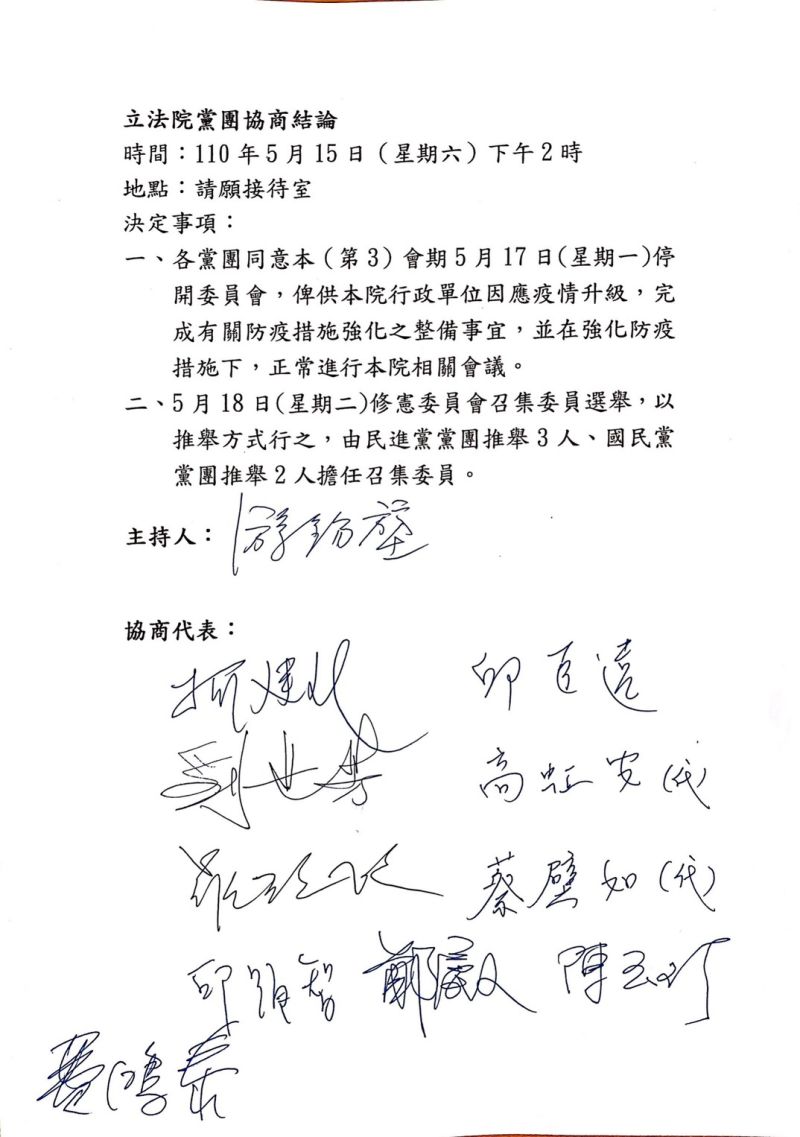 立法院黨團協商結論
時間：110 年 5 月 15 日（星期六）下午 2 時
地點：請願接待室
決定事項：
一、各黨團同意本（第 3）會期 5 月 17 日(星期一)停
開委員會，俾供本院行政單位因應疫情升級，完
成有關防疫措施強化之整備事宜，並在強化防疫
措施下，正常進行本院相關會議。
二、5 月 18 日(星期二)修憲委員會召集委員選舉，以
推舉方式行之，由民進黨黨團推舉 3 人、國民黨
黨團推舉 2 人擔任召集委員。
主持人：游錫堃
協商代表：
柯建銘 邱臣遠
劉世芳 高虹安(代)
羅致政 蔡壁如(代)
邱顯智 鄭麗文 陳玉珍
費鴻泰